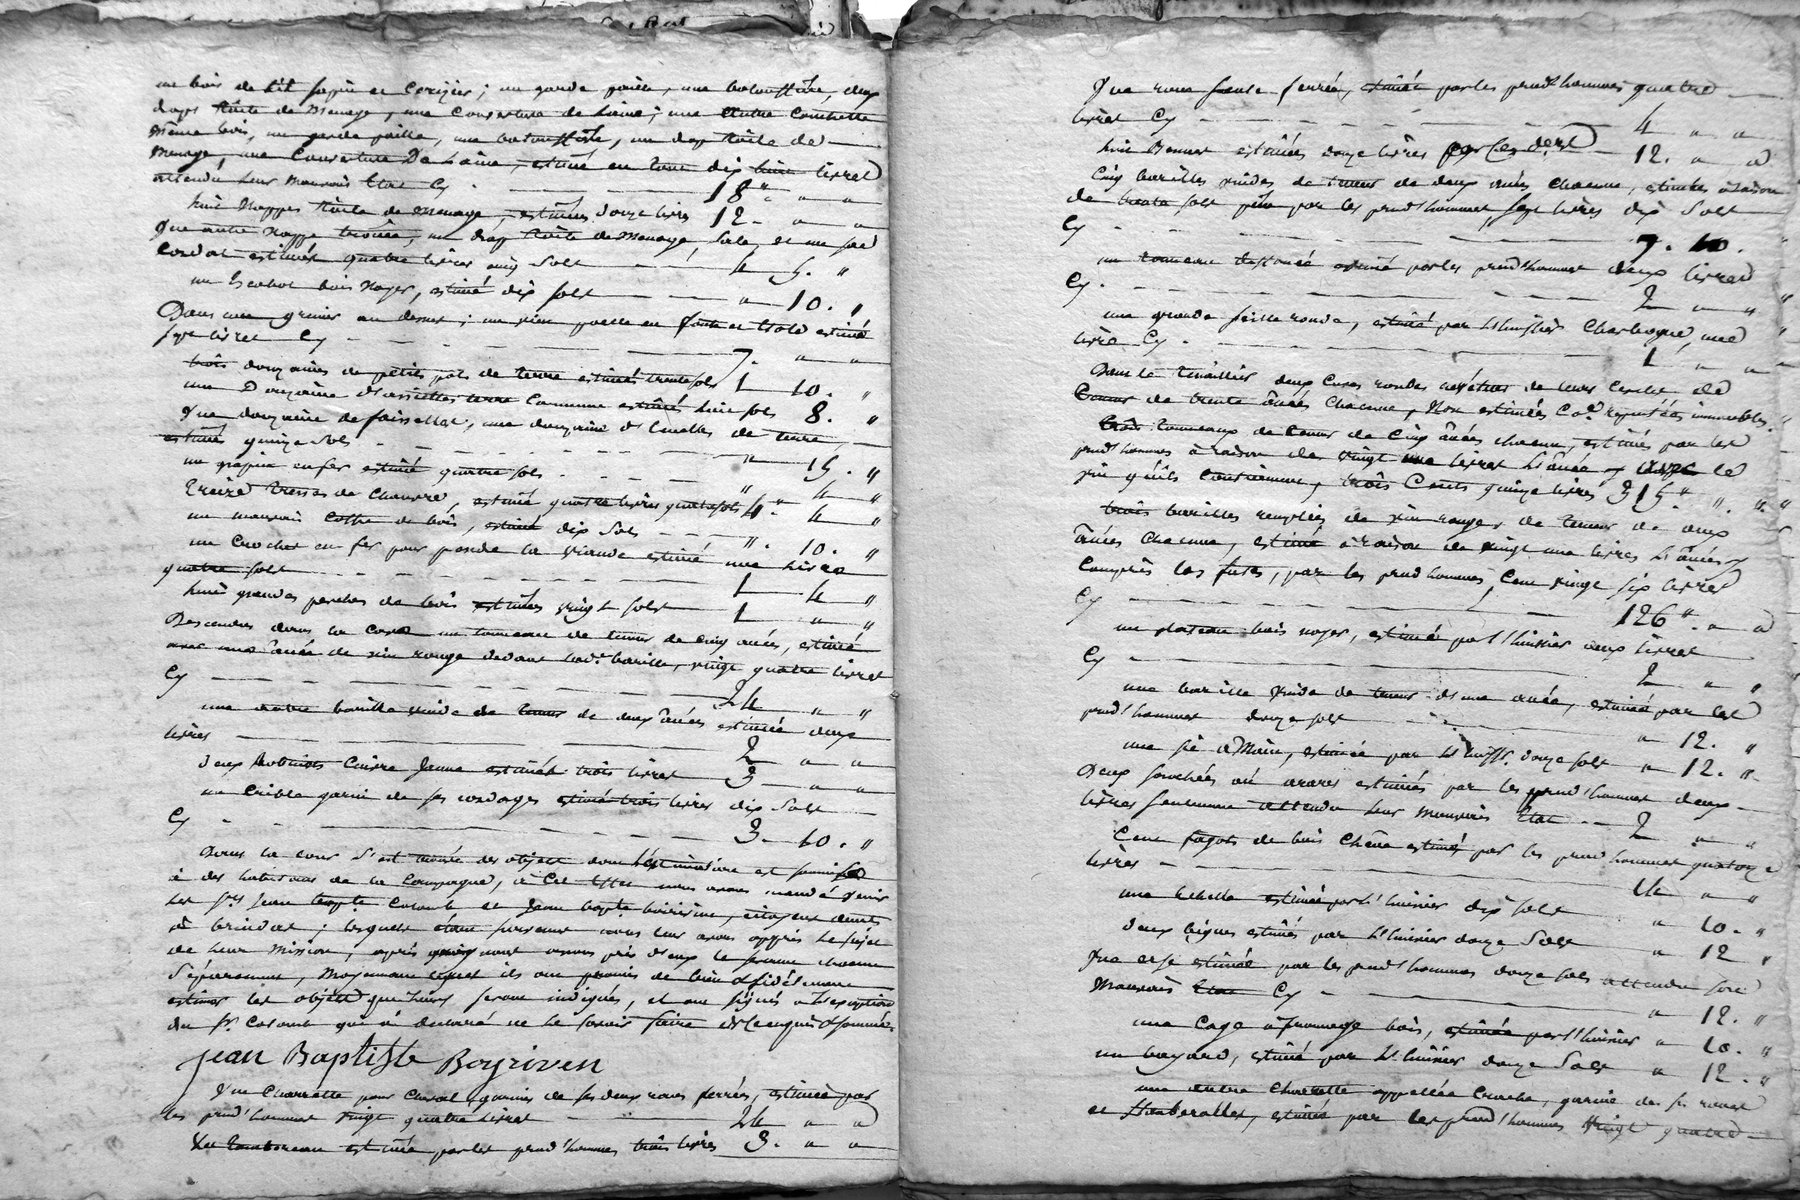 un bois de lit sapin et cerizier; un garde paille, une balouffière, deux
draps toile de menage, une couverture de laine; une autre couchette
même bois, un garde paille, une balouffière, un drap toile de
menage, une couverture de laine, estimé en tout dix huit livres
attendu leur mauvais état Cy 18 " "
huit nappes toile de menage, estimées douze livres 12 " "
Une autre nappe trouée, un drap toile de menage, sale, et un sac
estimés quatre livres cinq sols 4 5. "
un bois noyer, estimé dix sols " 10. "
Dans un grenier au dessus; un vieux poelle en fonte et tole estimé
sept livres Cy 7. " "
trois douzaines de petits pots de terre estimés trente sols 1 10. "
une Douzaine d'assiettes terre commune estimé huit sols 8. "
Une douzaine de faisselles, une douzaine d'écuelles de terre,
estimés quinze sols " 15. "
un grapin en fer estimé quatre sols " 4 "
treize tresses de chanvre, estimé quatre livres quatre sols 4. 4 "
un mauvais coffre de bois, estimé dix sols " 10. "
un crochet en fer pour pendre la viande estimé une livre
quatre sols 1 4 "
huit grandes perches de bois estimées vingt sols 1 " "
Descendus dans la cave un tonneau de tenue de cinq anées, estimé
avec une ânée de vin rouge dedans vingt quatre livres
Cy 24 " "
une autre barille vuide de tenue de deux ânées estimée deux
livres 2 " "
deux robinets cuivre jaune estimés trois livres 3 " "
un crible garni de ses cordages estimé trois livres dix sols
Cy 3. 10. "
Dans la cour s'est trouvé des objets dont l'estimation est
à des habitans de la campagne, à cet effet nous avons mandé venir
les Srs Jean Bapte Colomb et Jean Bapte boiriven, citoyens
à brindas; lesquels étant survenus nous leur avons appris le sujet
de leur mission, après quoy nous avons pris d'eux le serment chacun
séparément, moyennant lequel ils ont promis de bien et fidèlement
estimer les objets que leurs seront indiqués, et ont signés à l'exception
du Sr. Colomb qui a declaré ne le savoir faire de ce enquis et sommé.
Jean Baptiste Boyriven
Une charrette pour cheval garnie de ses deux roues ferrées, estimée par
les prud'hommes vingt quatre livres 24 " "
Un tombereau estimé par les prud'hommes trois livres 3. " "
Une roue seule ferrée, estimée par les prud'hommes quatre
livres Cy 4 " "
huit Bennes estimées douze livres par les dts 12. " "
Cinq barilles vuides de tenue de deux anées chacune, estimées à raison
de trente sols pièce par les prud'hommes, sept livres dix sols
Cy 7. 10. "
un tonneau estimé par les prud'hommes deux livres
Cy. 2 " "
une grande seille ronde, estimé par l'huissier Charbogne, une
livre Cy 1 " "
Dans le tinailler deux cuves rondes de leurs cercles de
tenue de trente ânées chacune, Non estimées réputées immeubles.
trois tonneaux de tenue de cinq ânées chacun, estimés par les
prud'hommes à raison de vingt une livres l'ânée avec le
vin qu'ils contiennent, trois cents quinze livres 315 " "
trois barilles remplies de vin rouge de tenue de deux
ânées chacune, estimé à raison de vingt une livres l'ânée
compris les futs, par les prud'hommes, cent vingt six livres
Cy 126 " "
un plateau bois noyer, estimé par l'huissier deux livres
Cy 2 " "
une barille vuide de tenue d'une anée, estimée par les
prud'hommes douze sols " 12. "
une sie à main, estimée par l'huissr. douze sols " 12. "
Deux ou araires estimés par les prud'hommes deux
livres seulement attendu leur mauvais état 2 " "
Cent fagots de bois chêne estimés par les prud'hommes quatorze
livres 14 " "
une echelle estimée par l'huissier dix sols " 10. "
deux bigues estimés par l'huissier douze sols " 12 "
Une estimée par les prud'hommes douze sols attendu son
mauvais état Cy " 12. "
une cage à fromage bois, estimée par l'huissier " 10. "
un bayard, estimé par l'huissier douze sols " 12. "
une autre charrette appellée garnie de ses roues
et estimée par les prud'hommes vingt quatre